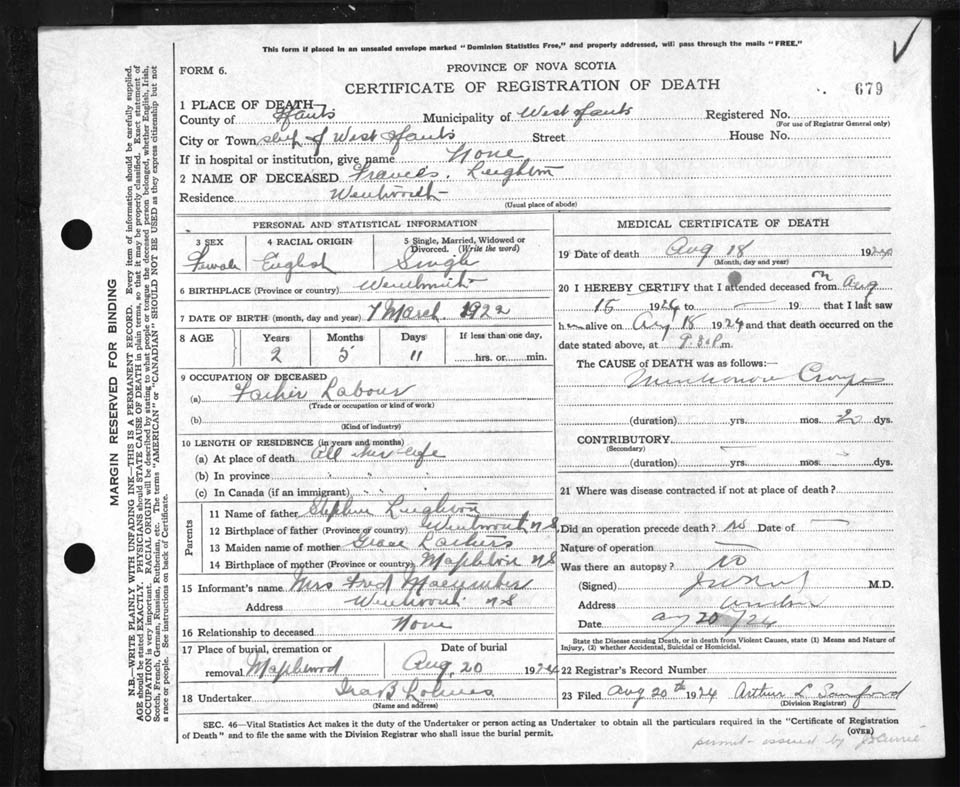 This form if placed in an unsealed envelope marked "Dominion Statistics Free," and properly addressed, will pass through the mails "FREE."
FORM 6.
PROVINCE OF NOVA SCOTIA
CERTIFICATE OF REGISTRATION OF DEATH
679
1 PLACE OF DEATH
County of Hants Municipality of West Hants Registered No.
(For use of Registrar General only)
City or Town ship of West Hants Street House No.
If in hospital or institution, give name None
2 NAME OF DECEASED Frances Leighton
Residence Wentworth
(Usual place of abode)
PERSONAL AND STATISTICAL INFORMATION
3 SEX 4 RACIAL ORIGIN 5 Single, Married, Widowed or Divorced. (Write the word)
Female English Single
6 BIRTHPLACE (Province or country) Wentworth
7 DATE OF BIRTH (month, day and year) 7 March 1922
8 AGE Years Months Days If less than one day,
2 5 11 hrs. or min.
9 OCCUPATION OF DECEASED
(a) Labour
(Trade or occupation or kind of work)
(b)
(Kind of industry)
10 LENGTH OF RESIDENCE (in years and months)
(a) At place of death All her life
(b) In province " " "
(c) In Canada (if an immigrant) " "
Parents
11 Name of father Stephen Leighton
12 Birthplace of father (Province or country) Wentworth NS
13 Maiden name of mother Grace
14 Birthplace of mother (Province or country) Mapleton NS
15 Informant's name Mrs Fred Macumber
Address Wentworth NS
16 Relationship to deceased None
17 Place of burial, cremation or removal Date of burial
Maplewood Aug. 20 1924
18 Undertaker Ira B
(Name and address)
MEDICAL CERTIFICATE OF DEATH
19 Date of death Aug 18 1924
(Month, day and year)
20 I HEREBY CERTIFY that I attended deceased from on Aug
15 1924 to — 19 that I last saw
h alive on Aug 18 1924 and that death occurred on the
date stated above, at 9.30 P.m.
The CAUSE of DEATH was as follows:
Croup
(duration) yrs. mos. 20 dys.
CONTRIBUTORY
(Secondary)
(duration) yrs. mos. dys.
21 Where was disease contracted if not at place of death?
Did an operation precede death? no Date of —
Nature of operation —
Was there an autopsy? no
(Signed) M.D.
Address
Date Aug 20/24
State the Disease causing Death, or in death from Violent Causes, state (1) Means and Nature of
Injury, (2) whether Accidental, Suicidal or Homicidal.
22 Registrar's Record Number
23 Filed Aug 20th 1924 Arthur L Sanford
(Division Registrar)
SEC. 46—Vital Statistics Act makes it the duty of the Undertaker or person acting as Undertaker to obtain all the particulars required in the "Certificate of Registration
of Death" and to file the same with the Division Registrar who shall issue the burial permit.
(OVER)
permit issued by
MARGIN RESERVED FOR BINDING
N.B.—WRITE PLAINLY WITH UNFADING INK—THIS IS A PERMANENT RECORD. Every item of information should be carefully supplied.
AGE should be stated EXACTLY. PHYSICIANS should STATE CAUSE OF DEATH in plain terms, so that it may be properly classified. Exact statement of
OCCUPATION is very important. RACIAL ORIGIN will be described by stating to what people or tongue the deceased person belonged, whether English, Irish,
Scotch, French, German, Russian, Ruthenian, etc. The terms "AMERICAN" or "CANADIAN" SHOULD NOT BE USED as they express citizenship but not
a race or people. See instructions on back of Certificate.